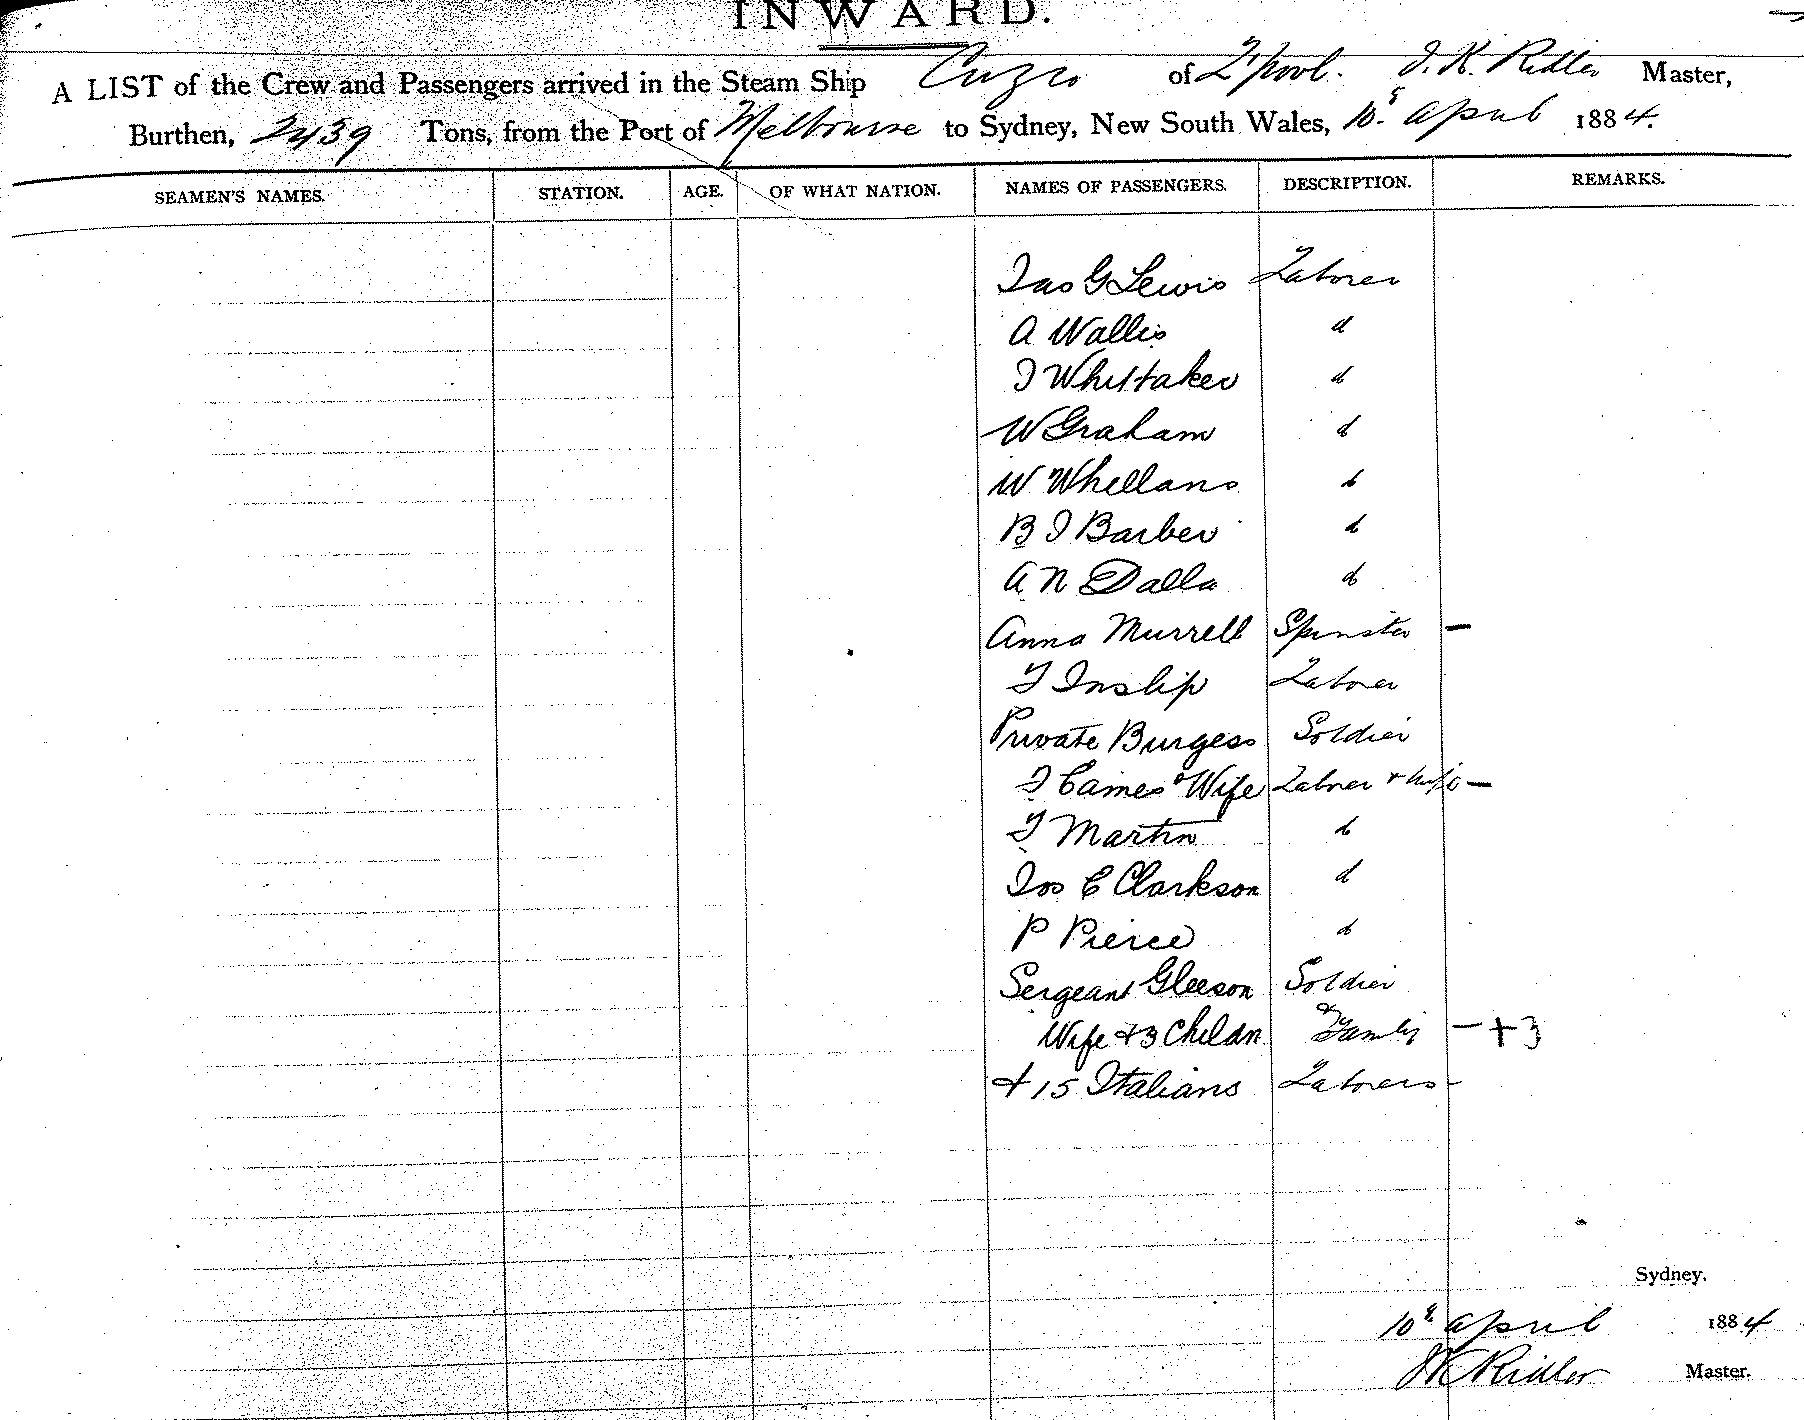 INWARD.
A LIST of the Crew and Passengers arrived in the Steam Ship Cuzco of L'pool. J. K. Ridler Master,
Burthen, 2439 Tons, from the Port of Melbourne to Sydney, New South Wales, 10th April 1884.
SEAMEN'S NAMES. STATION. AGE. OF WHAT NATION. NAMES OF PASSENGERS. DESCRIPTION. REMARKS.
Jas G Lewis Laborer
A Wallis d
J Whittaker d
W Graham d
W Whellans d
B J Barber d
A N Dalla d
Anna Murrell Spinster —
T Inslip Laborer
Private Burgess Soldier
J Cames & Wife Laborer & Wife —
T Martin d
Jos C Clarkson d
P Pierce d
Sergeant Gleeson Soldier
Wife & 3 Childn Family — + 3
& 15 Italians Laborers
Sydney.
10th April 1884
JK Ridler Master.